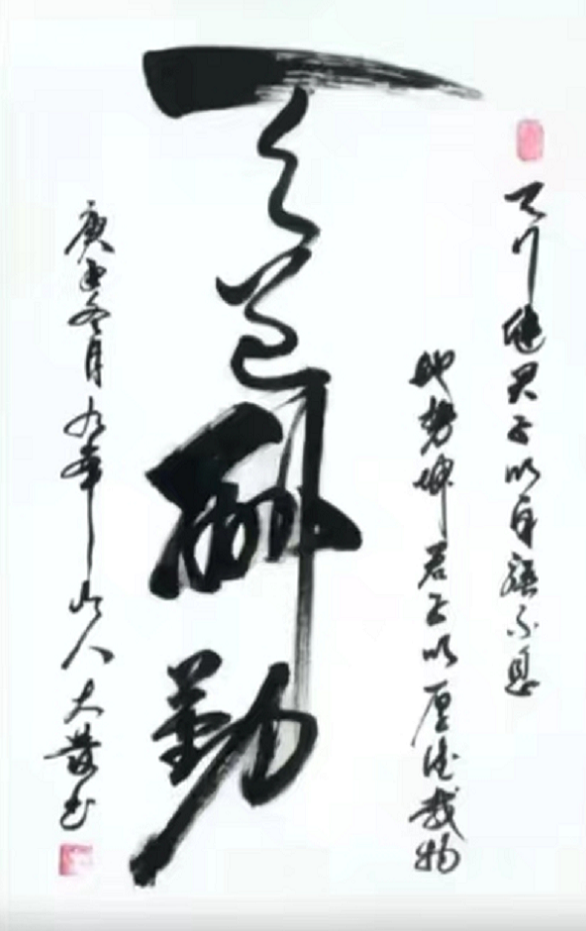 天行健君子以自强不息
地势坤君子以厚德载物
天道酬勤
庚 冬月九华山人大 书